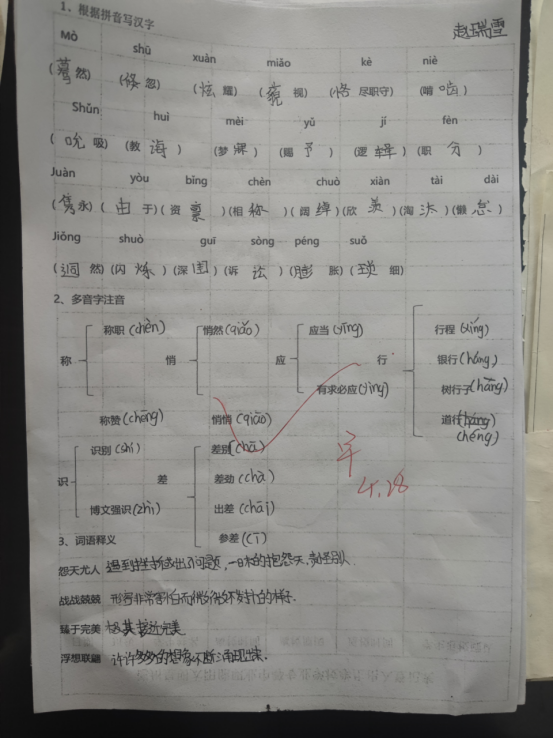 1、根据拼音写汉字 赵瑞雪
Mò shū xuàn miǎo kè niè
(蓦然) (倏忽) (炫耀) (藐视) (恪尽职守) (啃啮)
Shǔn huì mèi yǔ jí fèn
(吮吸) (教诲) (梦寐) (赐予) (逻辑) (职分)
Juàn yòu bǐng chèn chuò xiàn tài dài
(隽永) (由于) (资禀) (相称) (阔绰) (欣羡) (淘汰) (懒怠)
Jiǒng shuò guī sòng péng suǒ
(迥然) (闪烁) (深闺) (诉讼) (膨胀) (琐细)
2、多音字注音
称职(chèn) 悄然(qiǎo) 应当(yīng) 行程(xíng)
称 悄 应 行 银行(háng)
有求必应(yìng) 树行子(hàng)
称赞(chēng) 悄悄(qiāo) 道行(héng)
识别(shí) 差别(chā)
识 差 差劲(chà)
博文强识(zhì) 出差(chāi)
参差(cī)
4.28
3、词语释义
怨天尤人 遇到挫折或出了问题,一味的抱怨天,责怪别人.
战战兢兢 形容非常害怕而微微发抖的样子.
臻于完美 极其接近完美
浮想联翩 许许多多的想象不断涌现出来.